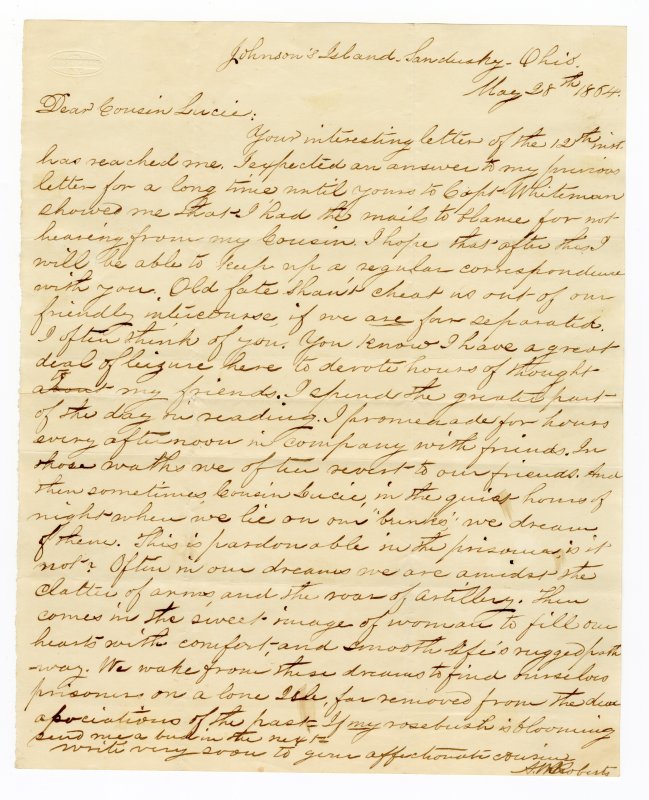 Johnson's Island - Sandusky - Ohio.
May 28th 1864.
Dear Cousin Lucie:
Your interesting letter of the 12th inst.
has reached me. I expected an answer to my previous
letter for a long time until yours to Capt. Whiteman
showed me that I had the mails to blame for not
hearing from my Cousin. I hope that after this I
will be able to keep up a regular correspondence
with you. Old fate shan't cheat us out of our
friendly intercourse, if we are far separated.
I often think of you. You know I have a great
deal of leizure here to devote hours of thought
to
about my friends. I spend the greater part
of the day in reading. I promenade for hours
every afternoon in company with friend. In
those walks we often revert to our friends. And
then sometimes, Cousin Lucie, in the quiet hours of
night when we lie on our "bunks", we dream
of them. This is pardonable in the prisoner, is it
not? Often in our dreams we are amidst the
clatter of arms and the roar of artillery. Then
comes in the sweet image of woman to fill our
hearts with comfort, and smooth life's rugged path
-way. We wake from these dreams to find ourselves
prisoners on a lone Isle, far removed from the dear
associations of the past - If my rosebush is blooming
send me a bud in the next -
Write very soon to your affectionate cousin
Roberts